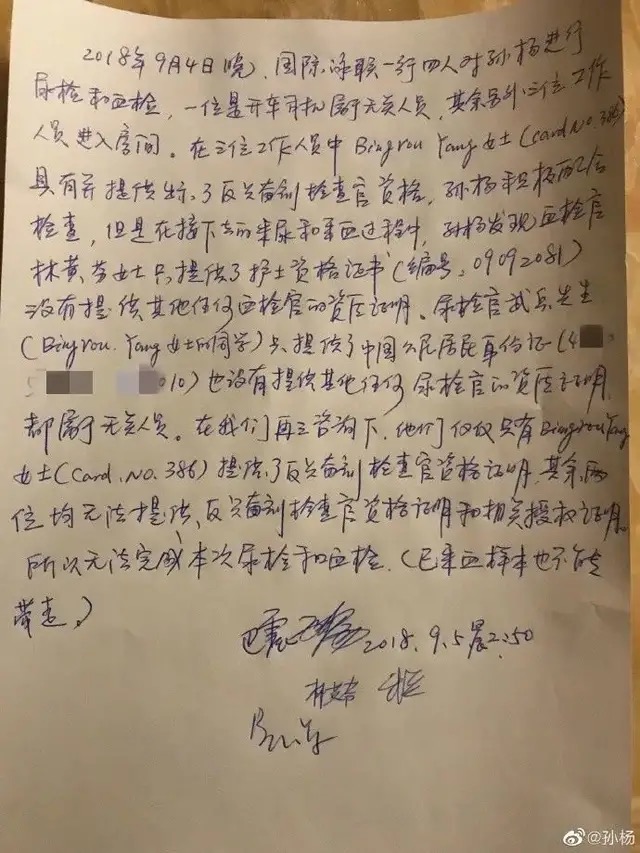 2018年9月4日晚，国际泳联一行四人对孙杨进行
尿检和血检，一位是开车司机属于无关人员，其余另外三位工作
人员进入房间。在三位工作人员中Bingrou Yang女士(Card.No.386)
具有并提供出示了反兴奋剂检查官资格，孙杨积极配合
检查，但是在接下去的采尿和采血过程中，孙杨发现血检官
林黄芬女士只提供了护士资格证书(编号:09092081)
没有提供其他任何血检官的资质证明。尿检官武兵先生
(Bingrou.Yang女士的同学)只提供了中国公民居民身份证(4
5 010)也没有提供其他任何尿检官的资质证明
都属于无关人员。在我们再三咨询下，他们仅仅只有Bingrou Yang
女士(Card.No.386)提供了反兴奋剂检查官资格证明，其余两
位均无法提供反兴奋剂检查官资格证明和相关授权证明。
所以无法完成本次尿检和血检.(已采血样本也不能
带走。)
2018.9.5晨2:50
@孙杨